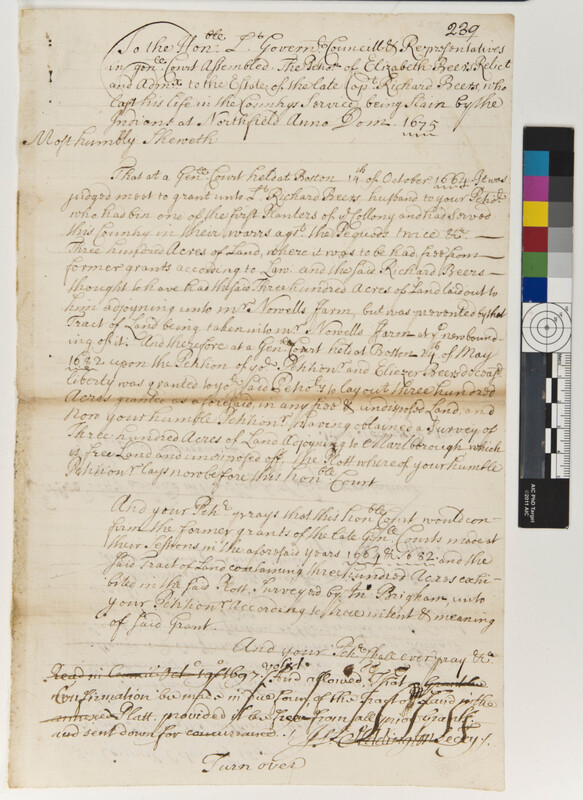 239
To the Honble Lt Governr Councill & Representatives
in genll Court Assembled. The Petion of Elizabeth Beers Relict
and Admx to the Estate of the late Capt Richard Beers, who
lost his life in the Countrys Service being Slain by the
Indians at Northfield Anno Dom 1675
Most humbly Sheweth
That at a Genll Court held at Boston 14th of October 1664 It was
judged meet to grant unto Lt Richard Beers husband to your Petionr
who had bin one of the first Planters of ye Collony and had served
this Country in their warrs agst the Pequods twice &c.
Three hundred Acres of Land, where it was to be had, free from
former grants according to Law and the said Richard Beers
thought to have had the said Three hundred Acres of Land laid out to
him adjoyning unto mr Nowells ffarm, but was prevented by that
Tract of Land being taken into mr Nowells ffarm at ye new bound-
ing of it; And therefore at a Genll Court held at Boston 24 of May
1682 upon the Petition of yor Petitionr and Eliezer Beers deceasd
liberty was granted to yor said Petionrs to lay out three hundred
Acres granted as aforesaid, in any free & undisposed Land, and
Now your humble Petitionr having obtayned a Survey of
Three hundred Acres of Land Adjoyning to Marlborough which
is free Land and undisposed off, The Plott whereof your humble
Petitionr lays now before this Honble Court
And your Petr prays that this honble Court would con-
firm the former grants of the late Genll Courts made at
their Sessions in the aforesaid years 1664 & 1682 and the
said Tract of Land containing three hundred Acres exhi-
bited in the said Plott, Surveyed by Jno Brigham, unto
your Petitionr According to the true intent & meaning
of said Grant.
And your Petr shall ever pray &ca
Read in Council Octor 19th 1697. voted And allowed That
Confirmation be made in due form of the Tract of Land in the
annexed Platt, provided it be free from all prior grants
and sent down for concurrance.
Is Addington Secry.
Turn over
AIC PhD Target
©2011 AIC